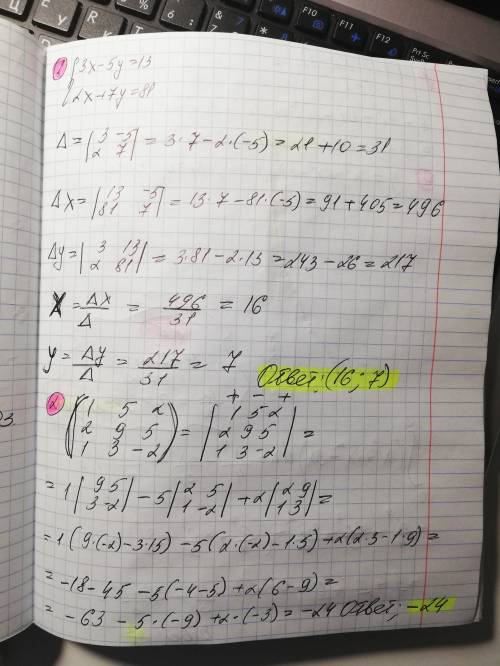 1) {3x-5y=13
{2x+7y=81
Δ=|3 -5|
|2 7| = 3·7-2·(-5)=21+10=31
Δx=|13 -5|
|81 7| = 13·7-81·(-5)=91+405=496
Δy=|3 13|
|2 81| = 3·81-2·13=243-26=217
X=Δx/Δ = 496/31 = 16
y=Δy/Δ = 217/31 = 7 Ответ: (16; 7)
+ - +
2) (1 5 2) |1 5 2|
(2 9 5) = |2 9 5| =
(1 3 -2) |1 3 -2|
=1|9 5| -5|2 5| +2|2 9|=
|3 -2| |1 -2| |1 3|
=1(9·(-2)-3·15) -5(2·(-2)-1·5)+2(2·3-1·9)=
=-18-45 -5(-4-5)+2(6-9)=
= -63 - 5·(-9)+2·(-3)=-24 Ответ: -24